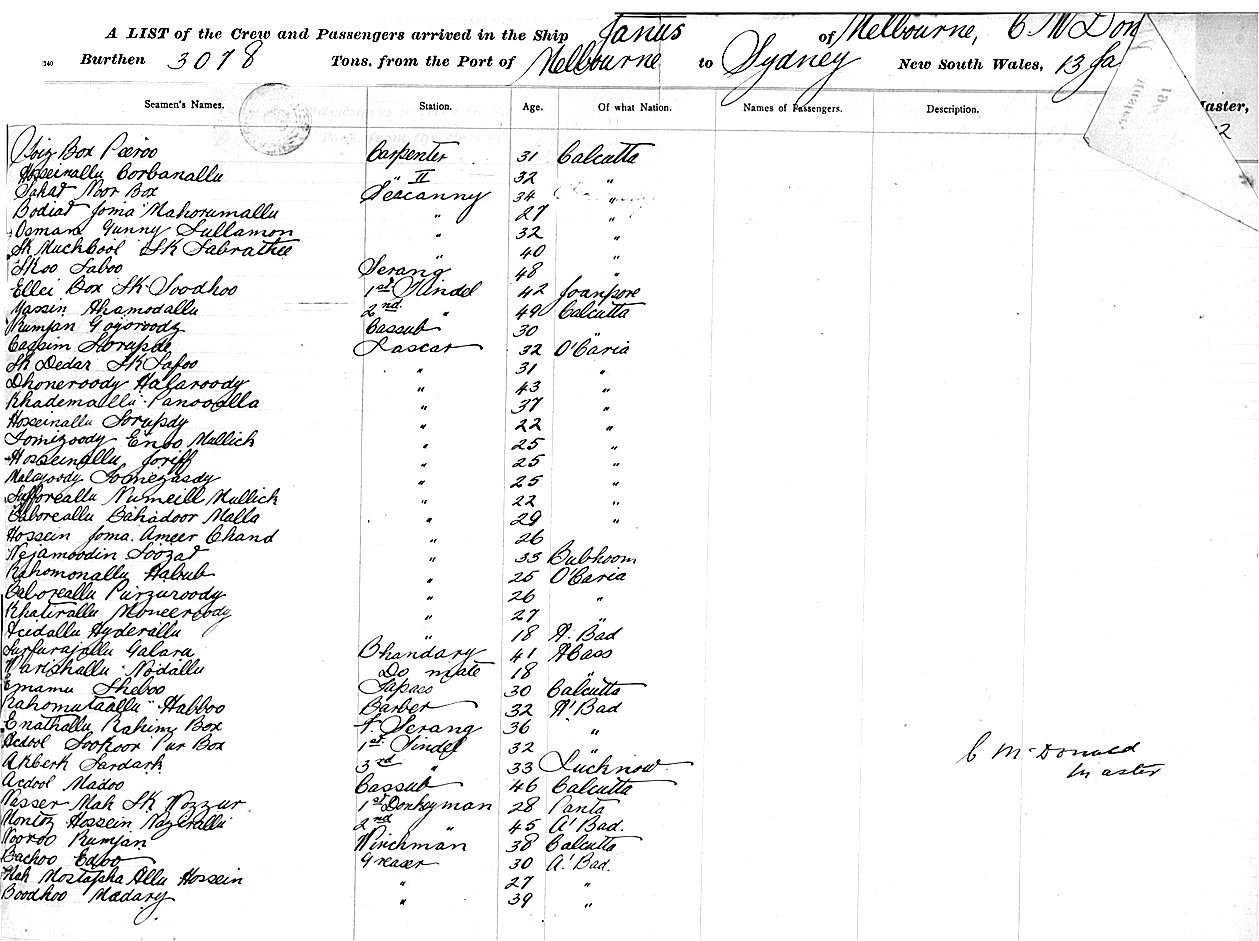 A LIST of the Crew and Passengers arrived in the Ship Janus of Melbourne, C McDon
140 Burthen 3078 Tons, from the Port of Melbourne to Sydney New South Wales, 13 Ja
Master,
Seamen's Names. Station. Age. Of what Nation. Names of Passengers. Description.
Box Peeroo Carpenter 31 Calcutta
Hosseinallu Corbanallu " II 32 "
Noor Box Seacanny 34 "
Bodiat Joma Mahorumallu " 27 "
Osman Gunny Sullamon " 32 "
Sk Muchbool Sk Sabrathee " 40 "
Skoo Saboo Serang 48 "
Ellei Box Sk Soodhoo 1st Tindel 42 Joanpore
Yassin Ahamodallu 2nd " 49 Calcutta
Rumjan Gogoroody Cassub 30 "
Cassim Lascar 32 O'Caria
Sk Dedar Sk Safoo " 31 "
Dhoneroody Halaroody " 43 "
Khademallu Panooalla " 37 "
Hosseinallu Sorupdy " 22 "
Tomizoody Enoo Mullick " 25 "
Hosseinallu Joriff " 25 "
" 25 "
Sufforeallu Numeill Mullick " 22 "
Caboreallu Bahadoor Malla " 29 "
Hossein Joma Ameer Chand " 26
Nejamoodin " 33 Bubhoom
Rahomonallu Habub " 25 O'Caria
Caboreallu Purzuroody " 26 "
Khatirallu Moneeroody " 27 "
Acidallu Hyderallu " 18 A. Bad
Surfurajallu Galara Bhandary 41 Abass
Warishallu Nodallu Do mate 18 "
Emamu Sheboo Topass 30 Calcutta
Rahomutaallu Habboo Barber 32 A'Bad
Enathallu Rahim Box F. Serang 36 "
Acdool Sookoor Pur Box 1st Tindel 32 "
Akberk Sardark 3rd " 33 Lucknow
Acdool Madoo Cassub 46 Calcutta
Nasser Mah Sk Wozzur 1st Donkeyman 28 Panta
Hossein Nazerallu 2nd " 45 A'Bad.
Nooroo Rumjan Winchman 38 Calcutta
Bachoo Edoo Greaser 30 A'Bad.
Mah Mostapha Allu Hossein " 27 "
Boodhoo Madary " 39 "
C McDonald
Master